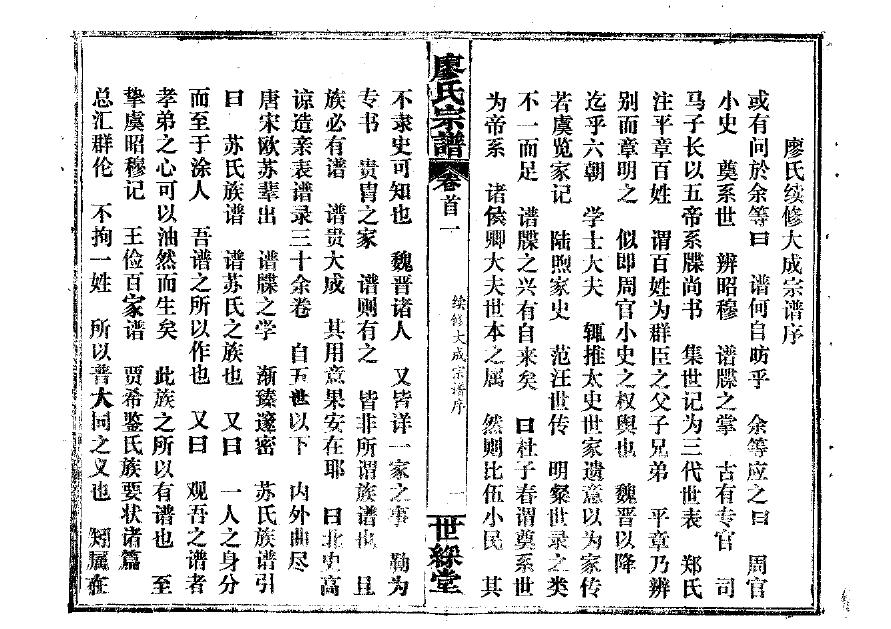 廖氏续修大成宗谱序
或有问於余等曰 谱何自昉乎 余等应之曰 周官
小史 奠系世 辨昭穆 谱牒之掌 古有专官 司
马子长以五帝系牒尚书 集世记为三代世表 郑氏
注平章百姓 谓百姓为群臣之父子兄弟 平章乃辨
别而章明之 似即周官小史之权舆也 魏晋以降
迄乎六朝 学士大夫 辄推太史世家遗意以为家传
若虞览家记 陆煦家史 范汪世传 明粲世录之类
不一而足 谱牒之兴有自来矣 曰杜子春谓奠系世
为帝系 诸侯卿大夫世本之属 然则比伍小民 其
廖氏宗譜 卷首一 续修大成宗谱序 一 世綵堂
不隶史可知也 魏晋诸人 又皆详一家之事 勒为
专书 贵胄之家 谱则有之 皆非所谓族谱也 且
族必有谱 谱贵大成 其用意果安在耶 曰北史高
谅造亲表谱录三十余卷 自五世以下 内外曲尽
唐宋欧苏辈出 谱牒之学 渐臻邃密 苏氏族谱引
曰 苏氏族谱 谱苏氏之族也 又曰 一人之身分
而至于涂人 吾谱之所以作也 又曰 观吾之谱者
孝弟之心可以油然而生矣 此族之所以有谱也 至
挚虞昭穆记 王俭百家谱 贾希鉴氏族要状诸篇
总汇群伦 不拘一姓 所以普大同之义也 矧属在